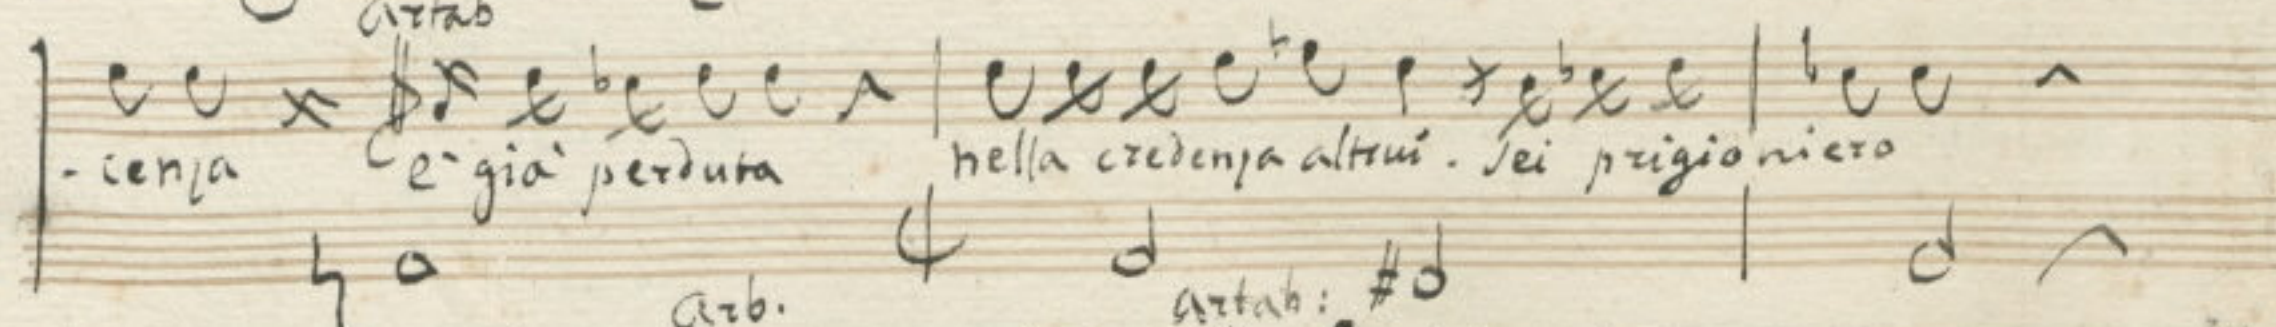 Artab
-cenza è già perduta nella credenza altrui. Sei prigioniero
Arb. Artab: